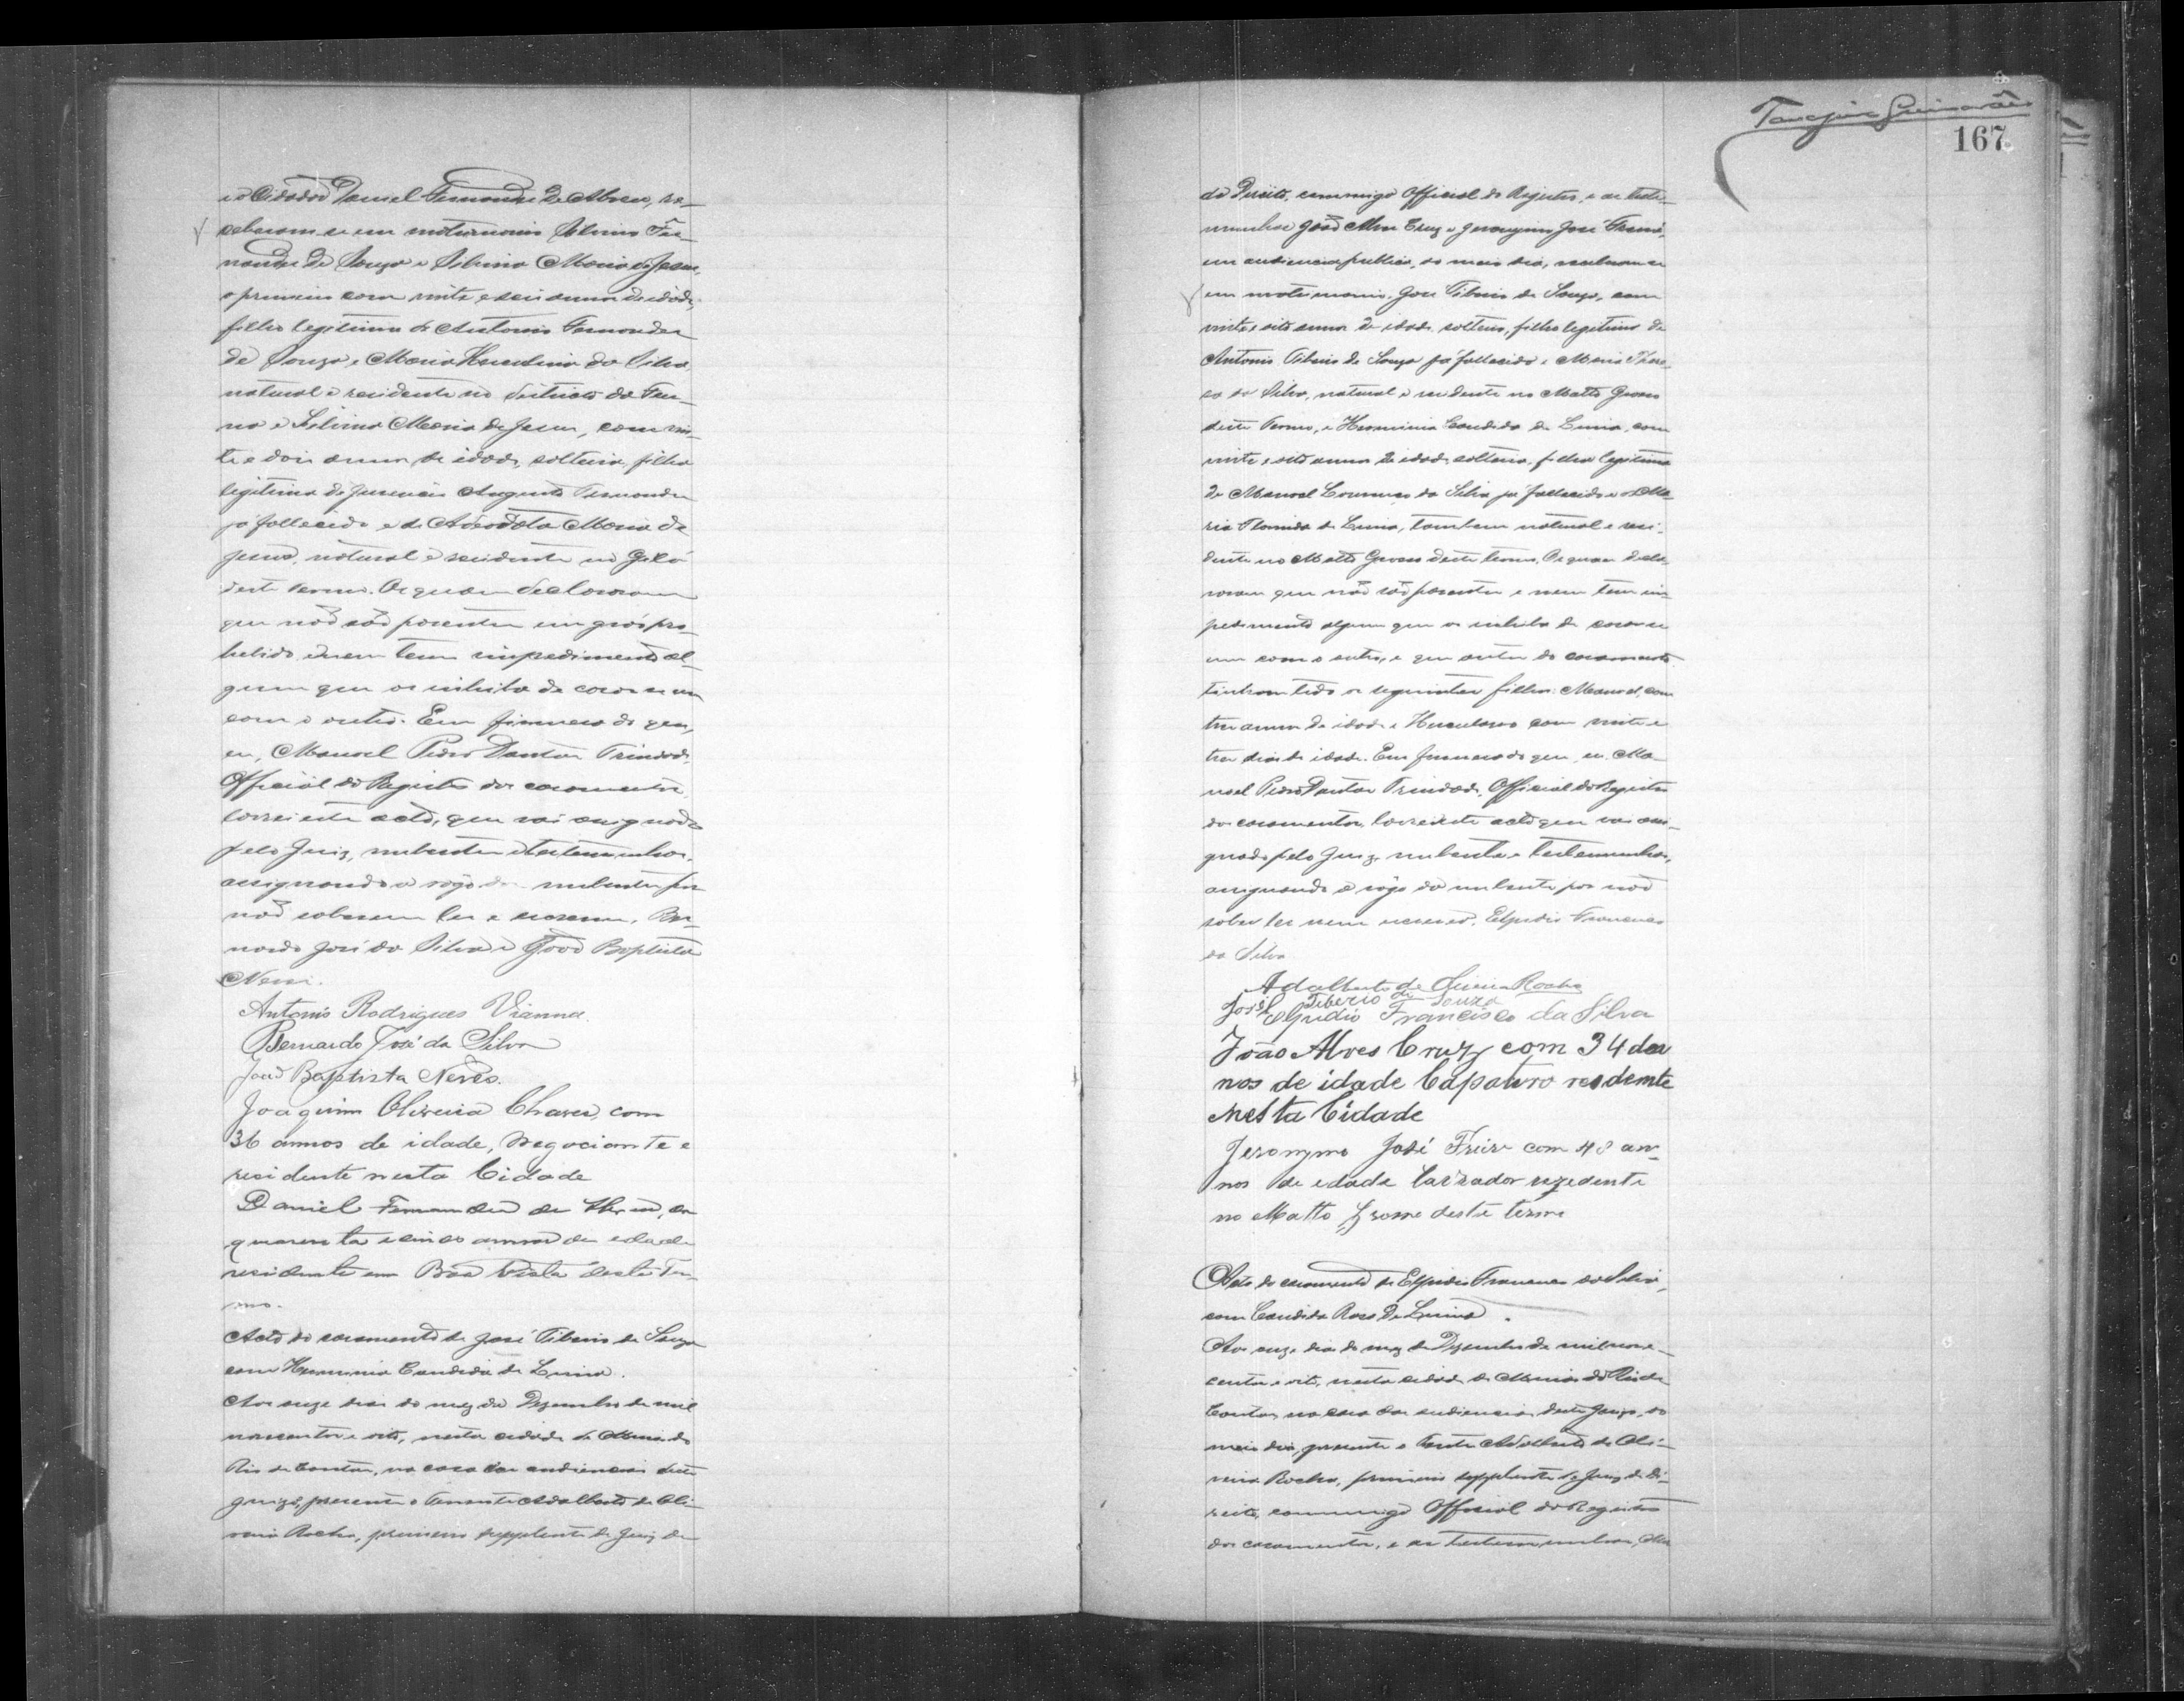 e o Cidadão Daniel Fernandes de Abreu, re-
ceberam-se em matrimonio Silvino Fer-
nandes de Souza e Silvina Maria de Jesus,
o primeiro com vinte e seis annos de idade,
filho legitimo de Antonio Fernandes
de Souza e Maria Herculina da Silva
natural e residente no districto da Fur-
na e Silvina Maria de Jesus, com vin-
te e dois annos de idade, solteira, filha
legitima de Juvencio Augusto Fernandes
já fallecido e de Maria de
Jesus, natural e residente no Giló
deste termo. Os quaes declararam
que não são parentes em gráo pro-
hibido, e nem tem impedimento al-
gum que os inhiba de casar-se um
com o outro. Em firmeza do que,
eu, Manoel Pedro Dantas Trindade,
Official do Registro dos casamentos,
lavrei este acto, que vai assignado
pelo Juiz, nubentes e testemunhas,
assignando a rogo dos nubentes por
não saberem ler e escrever, Ber-
nardo José da Silva e João Baptista
Neves.
Antonio Rodrigues Vianna.
Bernardo José da Silva
João Baptista Neves.
Joaquim Oliveira Chaves, com
36 annos de idade, Negociante e
residente nesta Cidade
Daniel Fernandes de Abreu, com
quarenta e cinco annos de edade
residente em Bôa Vista deste Ter-
mo.
Acto do casamento de José Tiberio de Souza
com Herminia Candida de Lima.
Aos onze dias do mez de Dezembro de mil
novecentos e oito, nesta cidade de Minas do
Rio de Contas, na casa das audiencias deste
juizo, presente o Tenente Adalberto de Oli-
veira Rocha, primeiro supplente do Juiz de
Tanajura Guimarães
167
de Direito, commigo Official do Registro, e as teste-
munhas João Alves Cruz e Jeronymo José Freire,
em audiencia publica, ao meio dia, receberam-se
em matrimonio José Tiberio de Souza, com
vinte e oito annos de idade, solteiro, filho legitimo de
Antonio Tiberio de Souza já fallecido e Maria There-
za da Silva, natural e residente no Matto Grosso
deste Termo, e Herminia Candida de Lima, com
vinte e oito annos de idade, solteira, filha legitima
de Manoel Lourenço da Silva já fallecido e de Ma-
ria de Lima, tambem natural e resi-
dente no Matto Grosso deste termo. Os quaes decla-
raram que não são parentes e nem tem im-
pedimento algum que os inhiba de casar-se
um com o outro, e que antes do casamento
tinham tido os seguintes filhos: Manoel, com
tres annos de idade e Herculano com vinte e
tres dias de idade. Em firmeza do que, eu, Ma-
noel Pedro Dantas Trindade, Official do Registro
dos casamentos, lavrei este acto que vai assi-
gnado pelo Juiz, nubentes e testemunhas,
assignando a rogo da nubente por não
saber ler nem escrever, Elpidio Francisco
da Silva
Adalberto de Oliveira Rocha
José Tiberio de Souza
Elpidio Francisco da Silva
João Alves Cruz com 34 da
nos de idade Çapateiro resdemte
Nesta Cidade
Jeronymo José Freire com 48 an-
nos de edade lavrador rezedente
no Matto Grosso deste termo
Acto do casamento de Elpidio Francisco da Silva,
com Candida Rosa de Lima.
Aos onze dias do mez de Dezembro de mil nove-
centos e oito, nesta cidade de Minas do Rio de
Contas, na casa das audiencias deste Juizo, ao
meio dia, presente o Tenente Adalberto de Oli-
veira Rocha, primeiro supplente do Juiz de Di-
reito, commigo Official do Registro
dos casamentos, e as testemunhas,